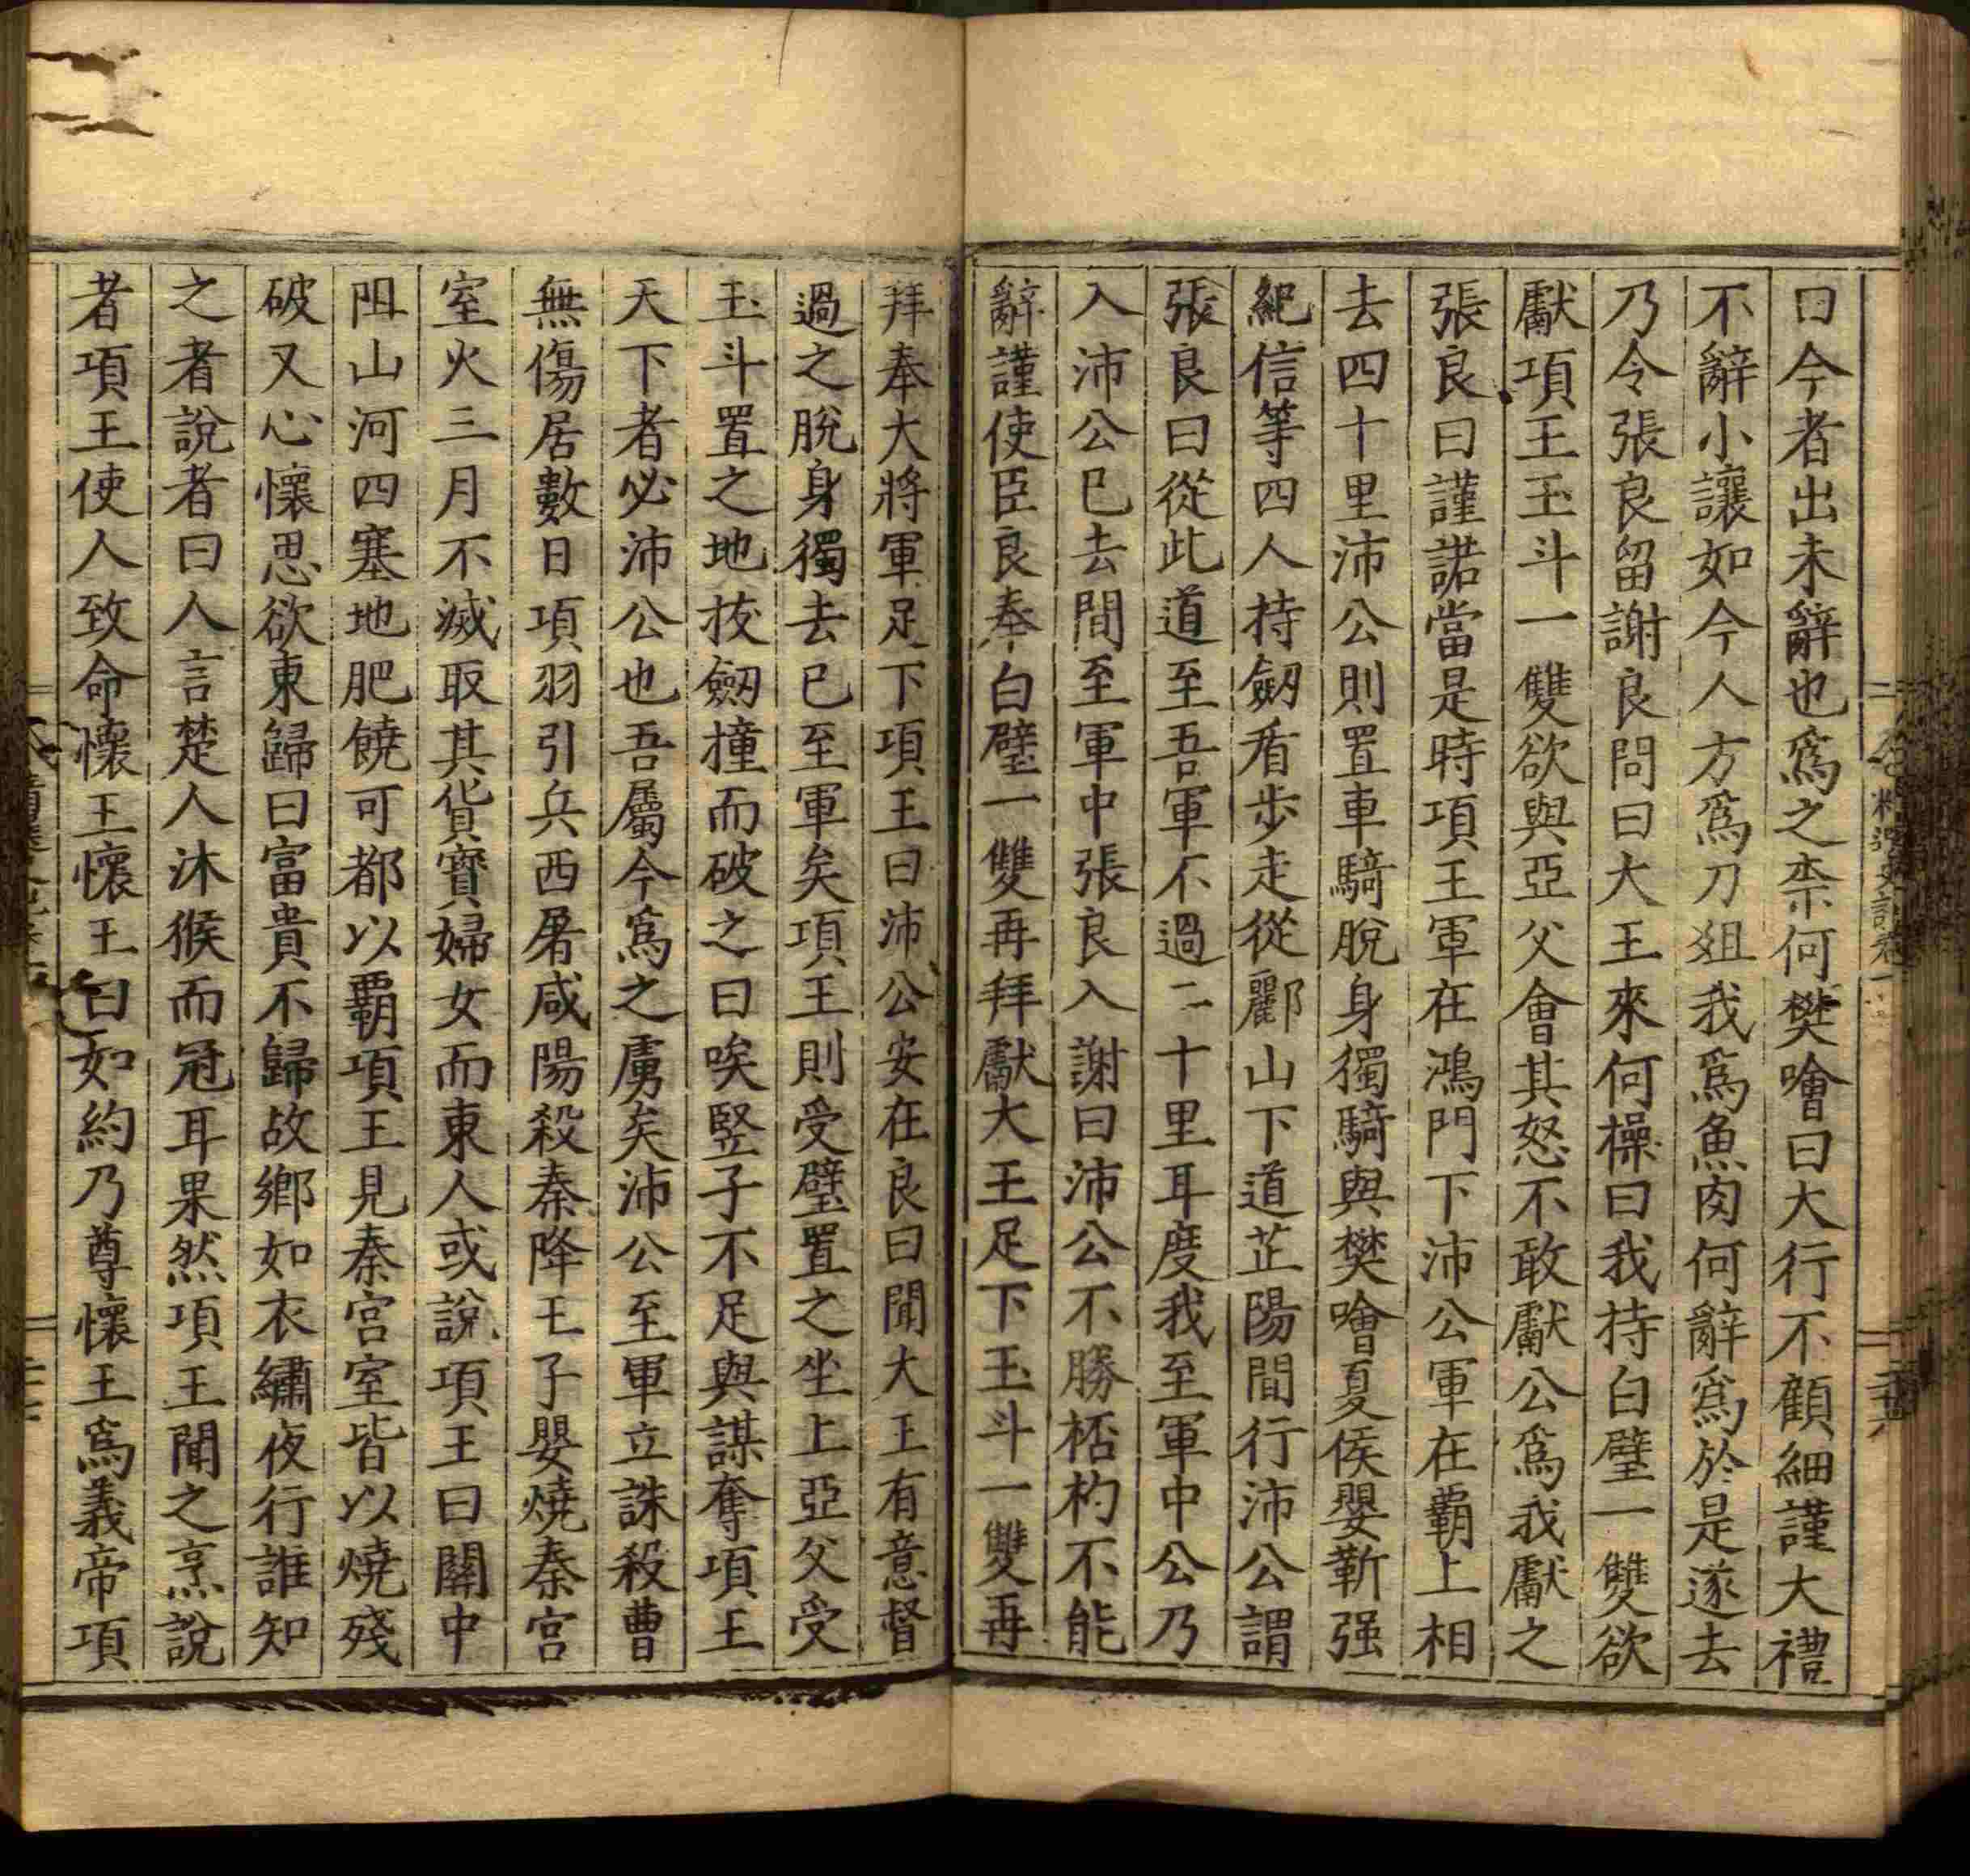 曰今者出未辭也爲之柰何樊噲曰大行不顧細謹大禮
不辭小讓如今人方爲刀俎我爲魚肉何辭爲於是遂去
乃令張良留謝良問曰大王來何操曰我持白璧一雙欲
獻項王玉斗一雙欲與亞父會其怒不敢獻公爲我獻之
張良曰謹諾當是時項王軍在鴻門下沛公軍在覇上相
去四十里沛公則置車騎脫身獨騎與樊噲夏侯嬰靳强
紀信等四人持劔盾步走從酈山下道芷陽間行沛公謂
張良曰從此道至吾軍不過二十里耳度我至軍中公乃
入沛公已去間至軍中張良入謝曰沛公不勝桮杓不能
辭謹使臣良奉白璧一雙再拜獻大王足下玉斗一雙再
拜奉大將軍足下項王曰沛公安在良曰聞大王有意督
過之脫身獨去已至軍矣項王則受璧置之坐上亞父受
玉斗置之地拔劔撞而破之曰唉竪子不足與謀奪項王
天下者必沛公也吾屬今爲之虜矣沛公至軍立誅殺曹
無傷居數日項羽引兵西屠咸陽殺秦降王子嬰燒秦宮
室火三月不滅取其貨寶婦女而東人或說項王曰關中
阻山河四塞地肥饒可都以覇項王見秦宮室皆以燒殘
破又心懷思欲東歸曰富貴不歸故鄉如衣繡夜行誰知
之者說者曰人言楚人沐猴而冠耳果然項王聞之烹說
者項王使人致命懷王懷王曰如約乃尊懷王爲義帝項